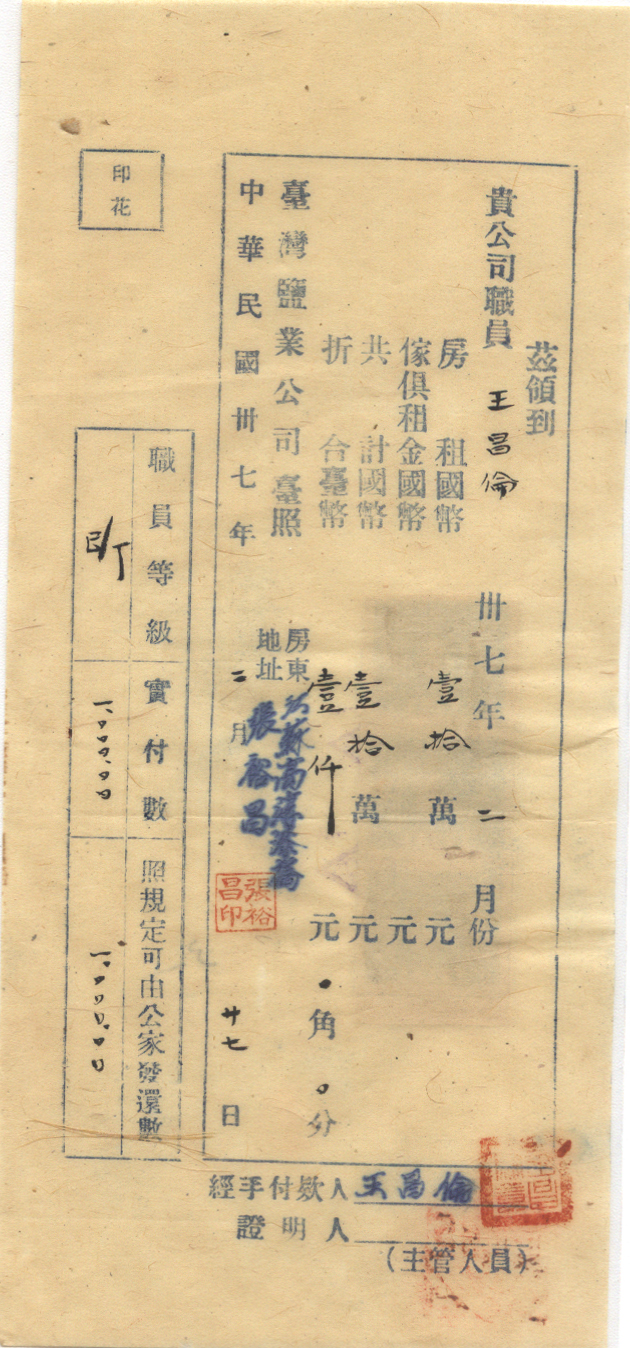 茲領到
貴公司職員 王昌倫 卅七年 二 月份
房租國幣 壹拾萬 元
傢俱租金國幣 元
共計國幣 壹拾萬 元
折台臺幣 壹仟 元 0 角 0 分
臺灣鹽業公司臺照
房東
地址
張裕昌
張裕昌印
中華民國卅七年 二 月 廿七 日
印花
職員等級 實付數 照規定可由公家發還數
1,000.00 1,000.00
經手付款人 王昌倫
證明人
(主管人員)